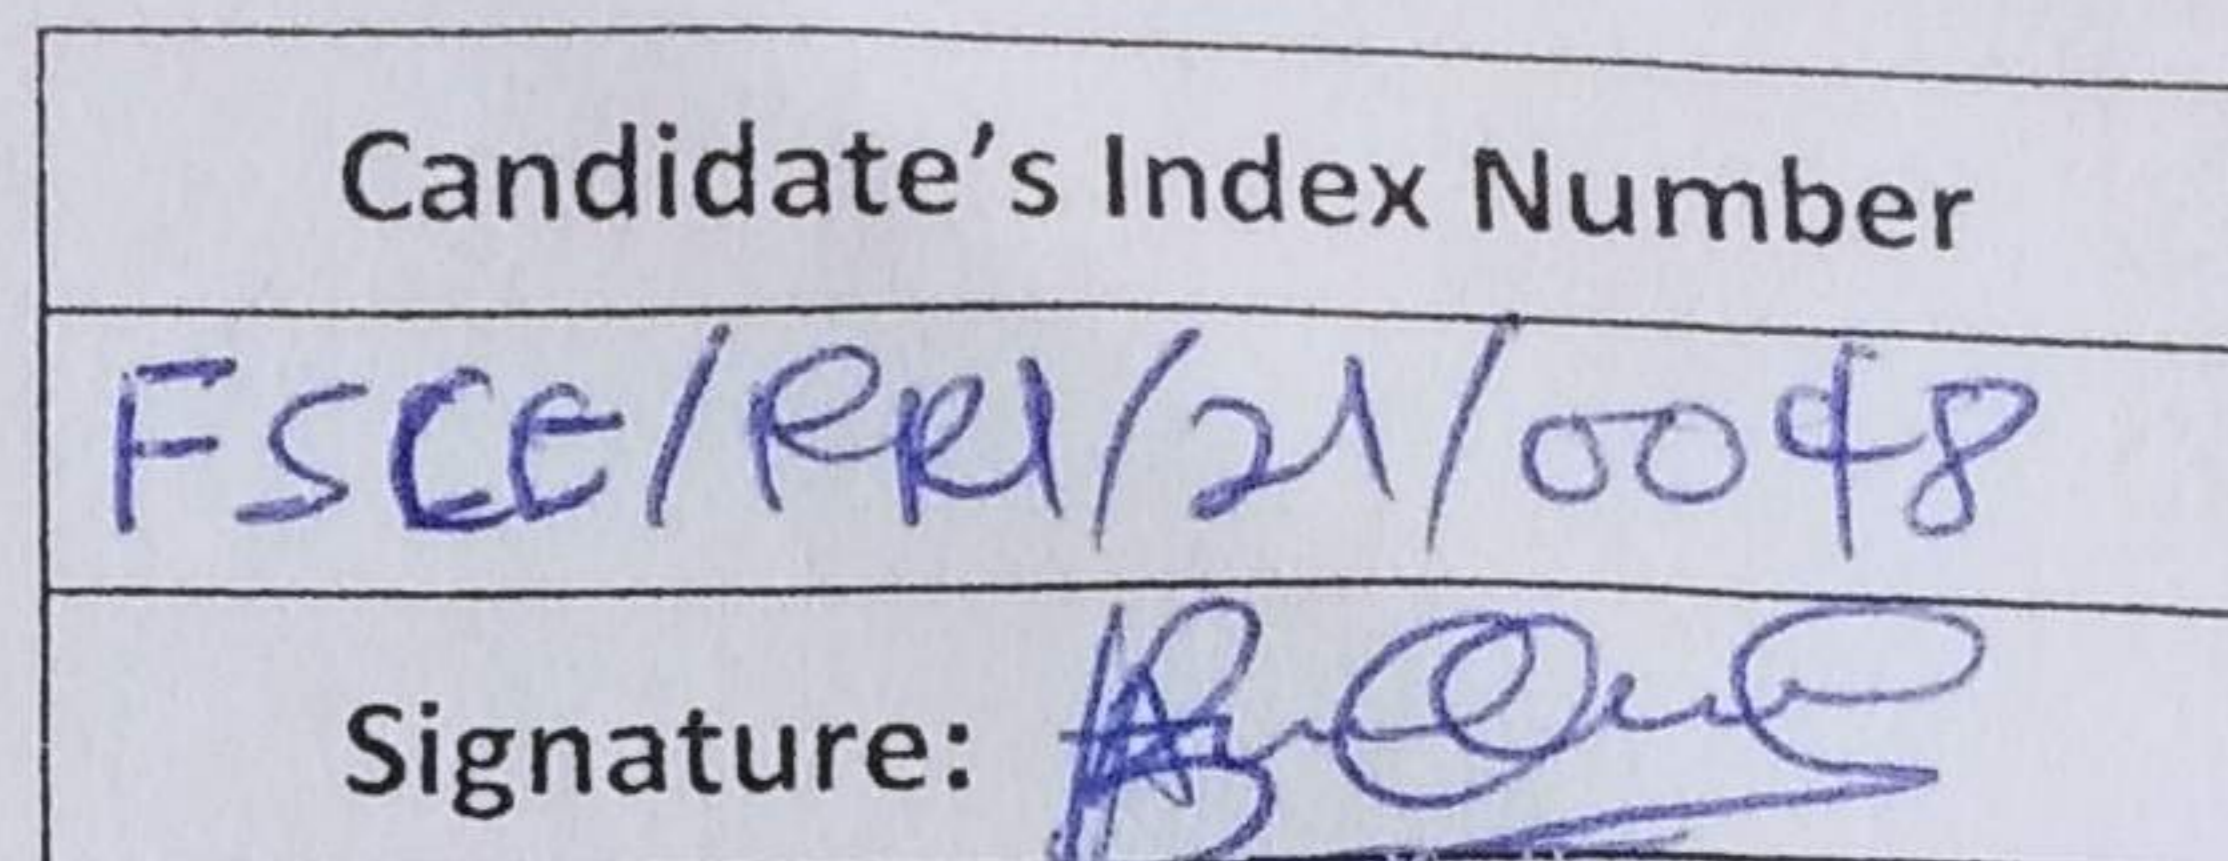 Candidate's Index Number
FSCE/PRI/21/0048
Signature: